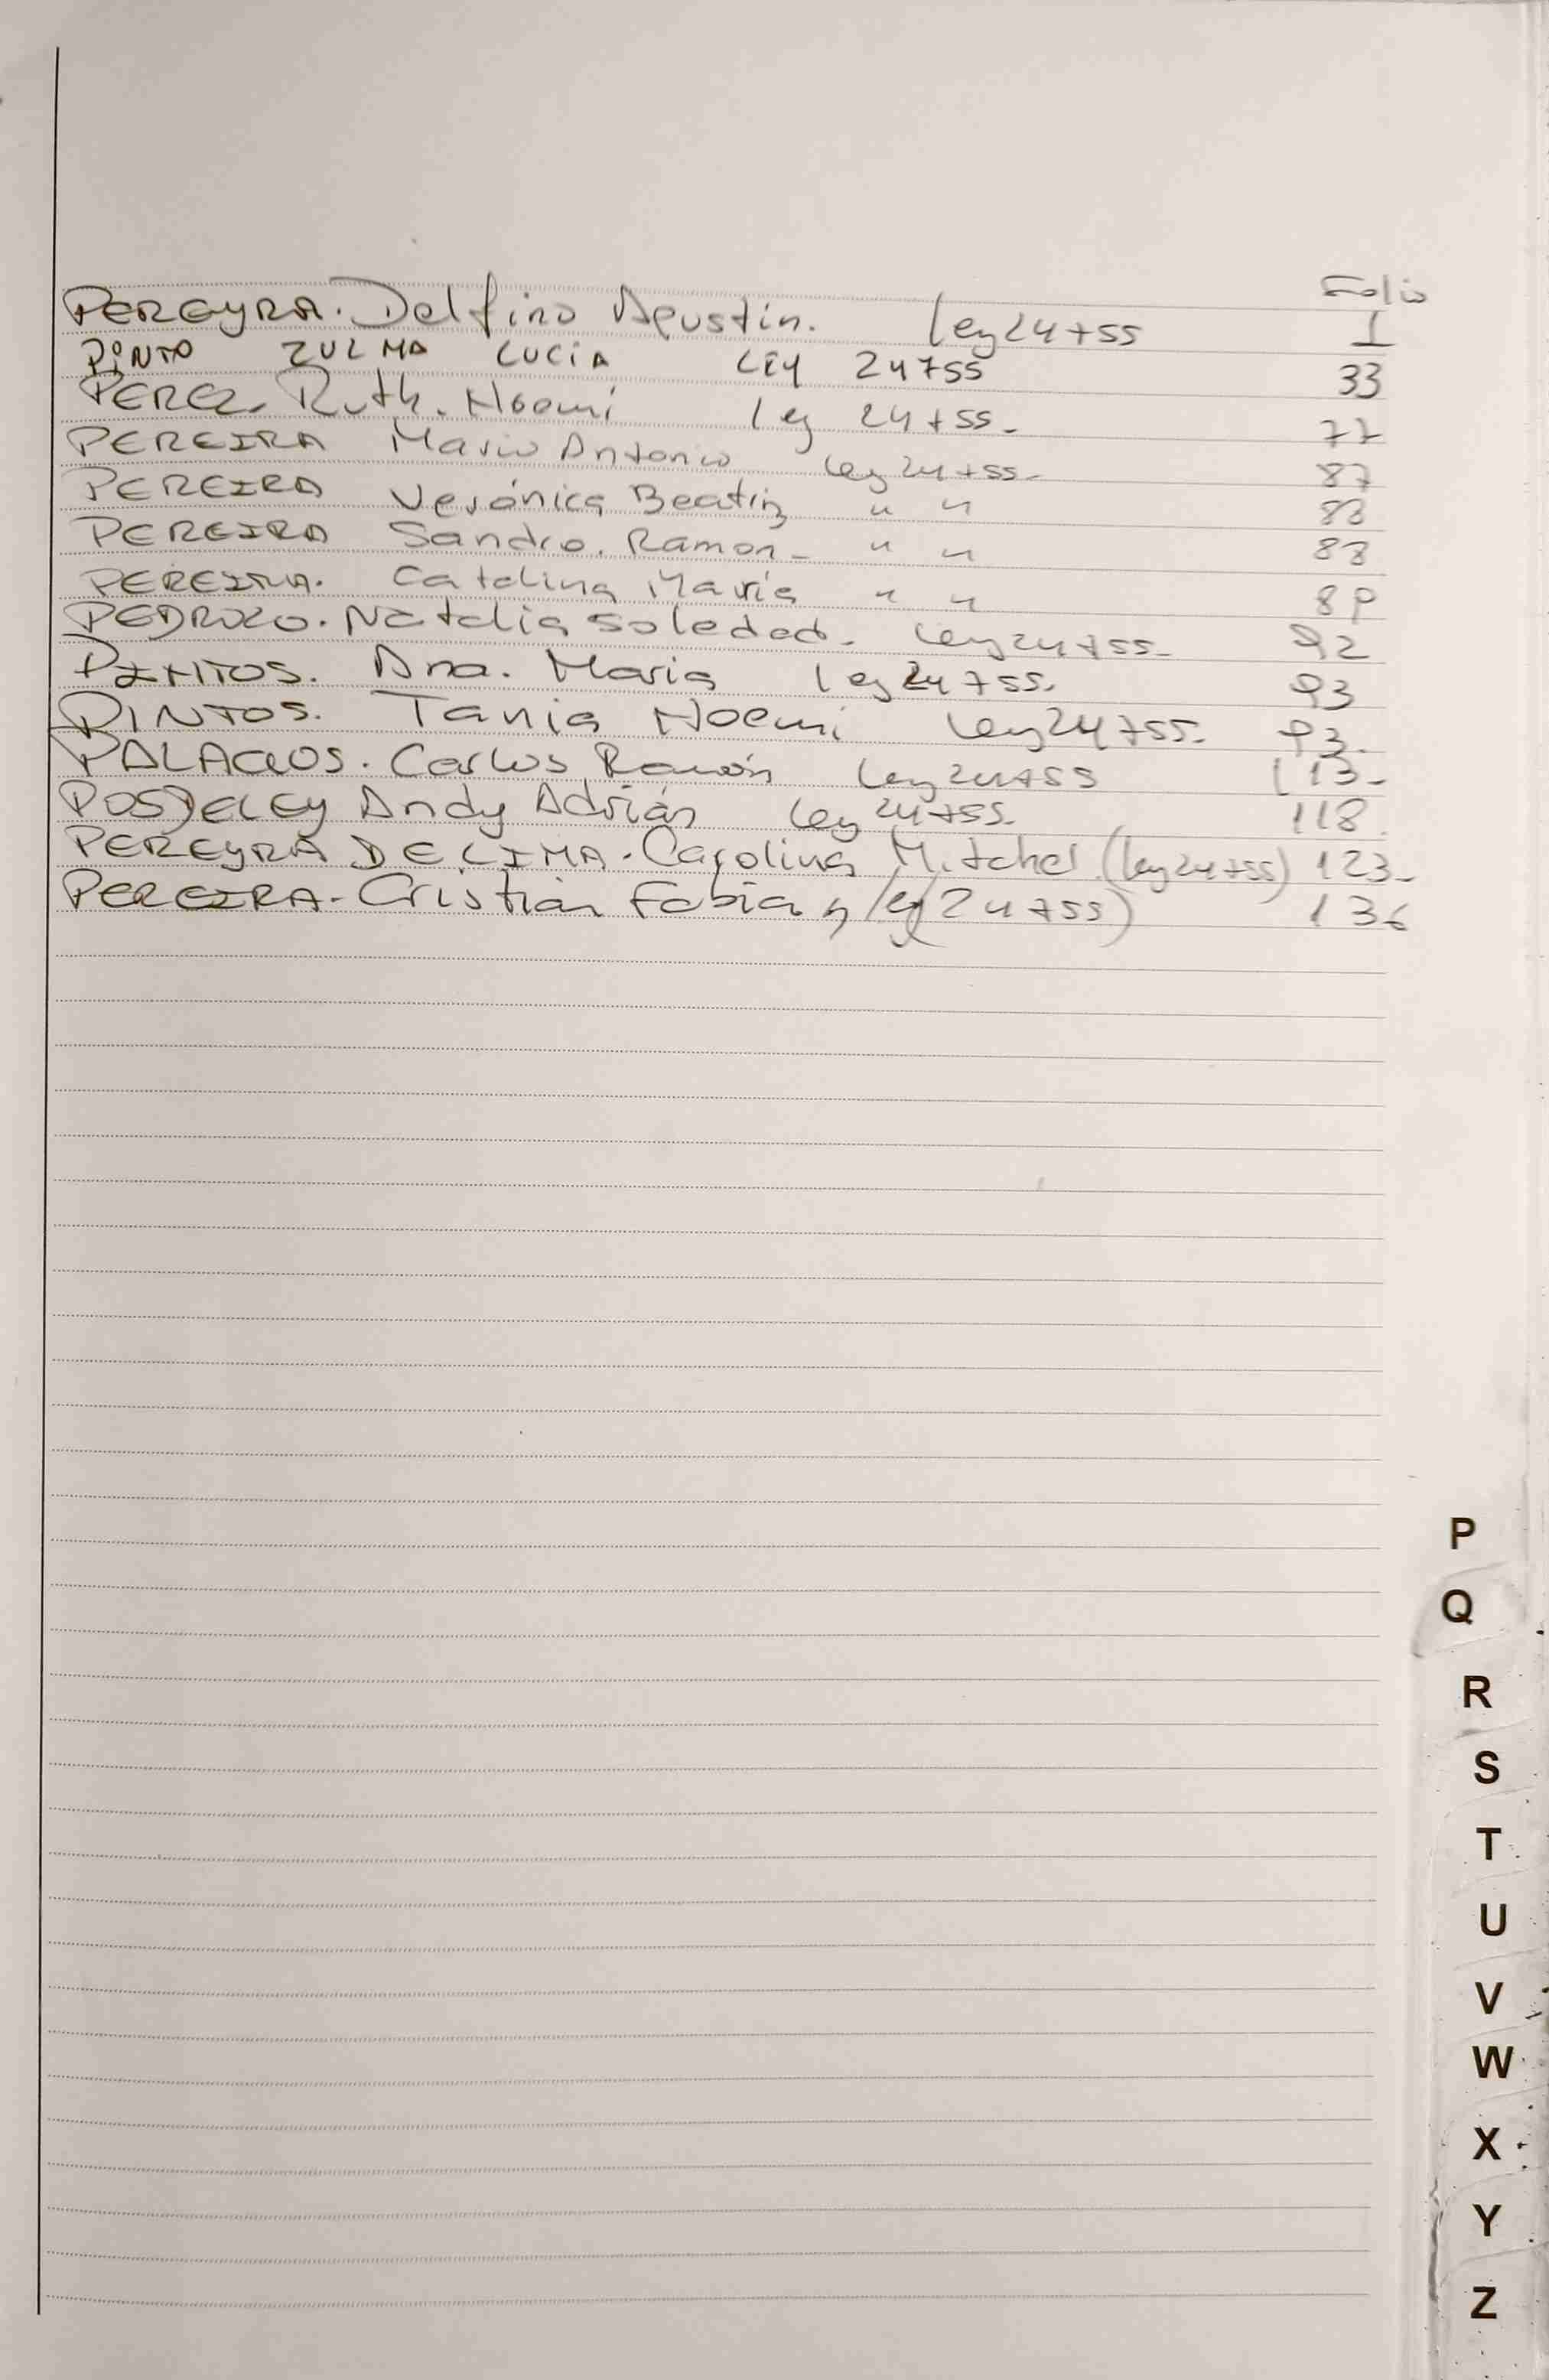 Folio
PEREYRA. Delfino Agustin. Ley 24755 1
PINTO ZULMA LUCIA LEY 24755 33
PEREZ. Ruth. Noemi ley 24755- 77
PEREIRA Mario Antonio ley 24755- 87
PEREIRA Verónica Beatriz " " 88
PEREIRA Sandro. Ramon- " " 88
PEREIRA. Catalina María " " 89
PEDROZO. Natalia Soledad. Ley 24755- 92
PINTOS. Ana. Maria ley 24755. 93
PINTOS. Tania Noemi Ley 24755. 93.
PALACIOS. Carlos Ramón Ley 24755 113-
Andy Adrián Ley 24755. 118.
PEREYRA DE LIMA. Carolina Mitchel (ley 24755) 123-
PEREIRA- Cristian Fabian ley (24755) 136
P
Q
R
S
T
U
V
W
X
Y
Z